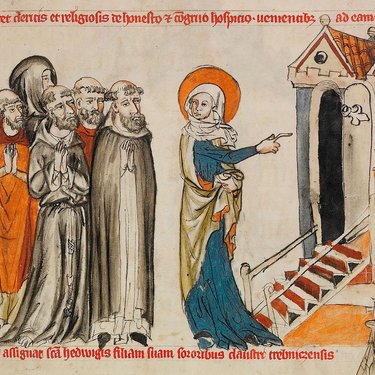 et clericis et religiosis de honesto & congruo hospicio venientibus ad eam
assignat sca hedwigis filiam suam sororibus claustri trebnicensis